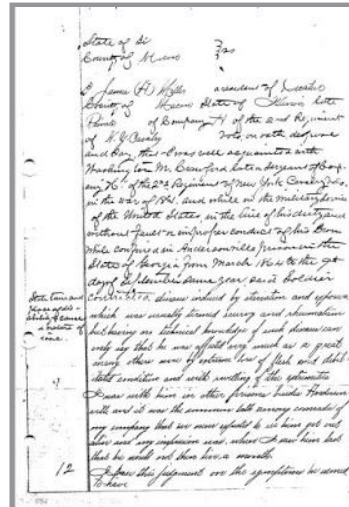 State of Ill
County of Macon } ss
I James H Miller a resident of
County of Macon State of Illinois late
Private of Company H of the 2nd Regiment
of N.Y. Cavalry Vols, on oath depose
and say, that I was well acquainted with
Washington M. Crawford late a Sergeant of Comp
any "H" of the 2nd Regiment of New York Cavalry Vols.
in the war of 1861, and while in the military service
of the United States, in the line of his duty and
without fault or improper conduct of his Own
While confined in Andersonville prison in the
State of Georgia from March 1864 to the 9th
day of September same year said Soldier
contracted disease induced by starvation and exposure
which was usually termed scurvy and rheumatism
but having no technical knowledge of such disease can
only say that he was afflicted very much as a great
many other were of extreme loss of flesh and debil-
itated condition and with swelling of the extremities
I was with him in other prisons besides Anderson
ville and it was the common talk among comrades of
my company that we never expected to see him get out
alive and my impression was, when I saw him last
that he would not then live a month.
I draw this judgment over the symptoms he seemed
to have
State time and
place of dis-
ability & cause
12